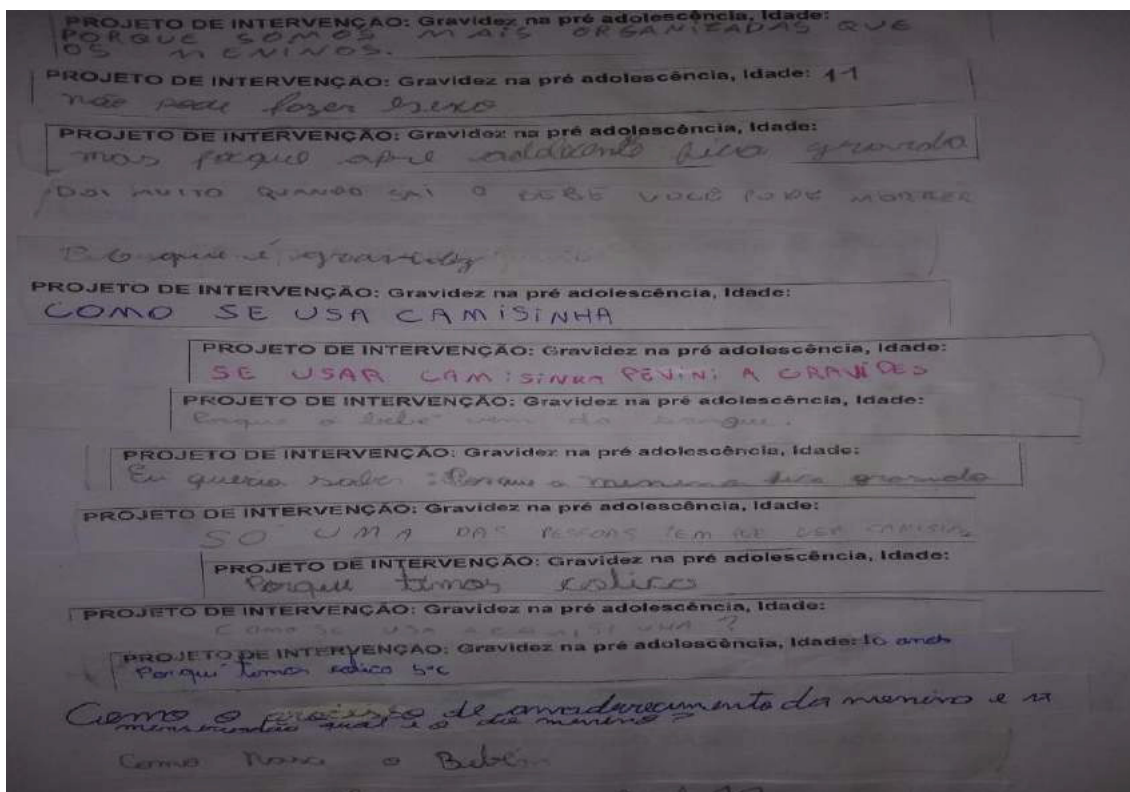 PROJETO DE INTERVENÇÃO: Gravidez na pré adolescência, Idade:
PORQUE SOMOS MAIS ORGANIZADAS QUE
OS MENINOS.
PROJETO DE INTERVENÇÃO: Gravidez na pré adolescência, Idade: 11
não pode fazer sexo
PROJETO DE INTERVENÇÃO: Gravidez na pré adolescência, Idade:
mas porque fica gravida
DOI MUITO QUANDO SAI O BEBE VOCÊ PODE MORRER
O que é gravidez
PROJETO DE INTERVENÇÃO: Gravidez na pré adolescência, Idade:
COMO SE USA CAMISINHA
PROJETO DE INTERVENÇÃO: Gravidez na pré adolescência, Idade:
SE USAR CAMISINHA PEVINI A GRAVIDES
PROJETO DE INTERVENÇÃO: Gravidez na pré adolescência, Idade:
Porque o bebê vem da sangue.
PROJETO DE INTERVENÇÃO: Gravidez na pré adolescência, Idade:
Eu queria saber : Porque a menina fica gravida
PROJETO DE INTERVENÇÃO: Gravidez na pré adolescência, Idade:
SO UMA DAS PESSOAS TEM QUE USAR
PROJETO DE INTERVENÇÃO: Gravidez na pré adolescência, Idade:
Porque temos colica
PROJETO DE INTERVENÇÃO: Gravidez na pré adolescência, Idade:
COMO SE USA A CAMISINHA ?
PROJETO DE INTERVENÇÃO: Gravidez na pré adolescência, Idade: 10 anos
Porqui temos colica 5ºC
Como o processo de amadurecimento da menina e na
menstruação qual é o do menino?
Como Nase o Bebê